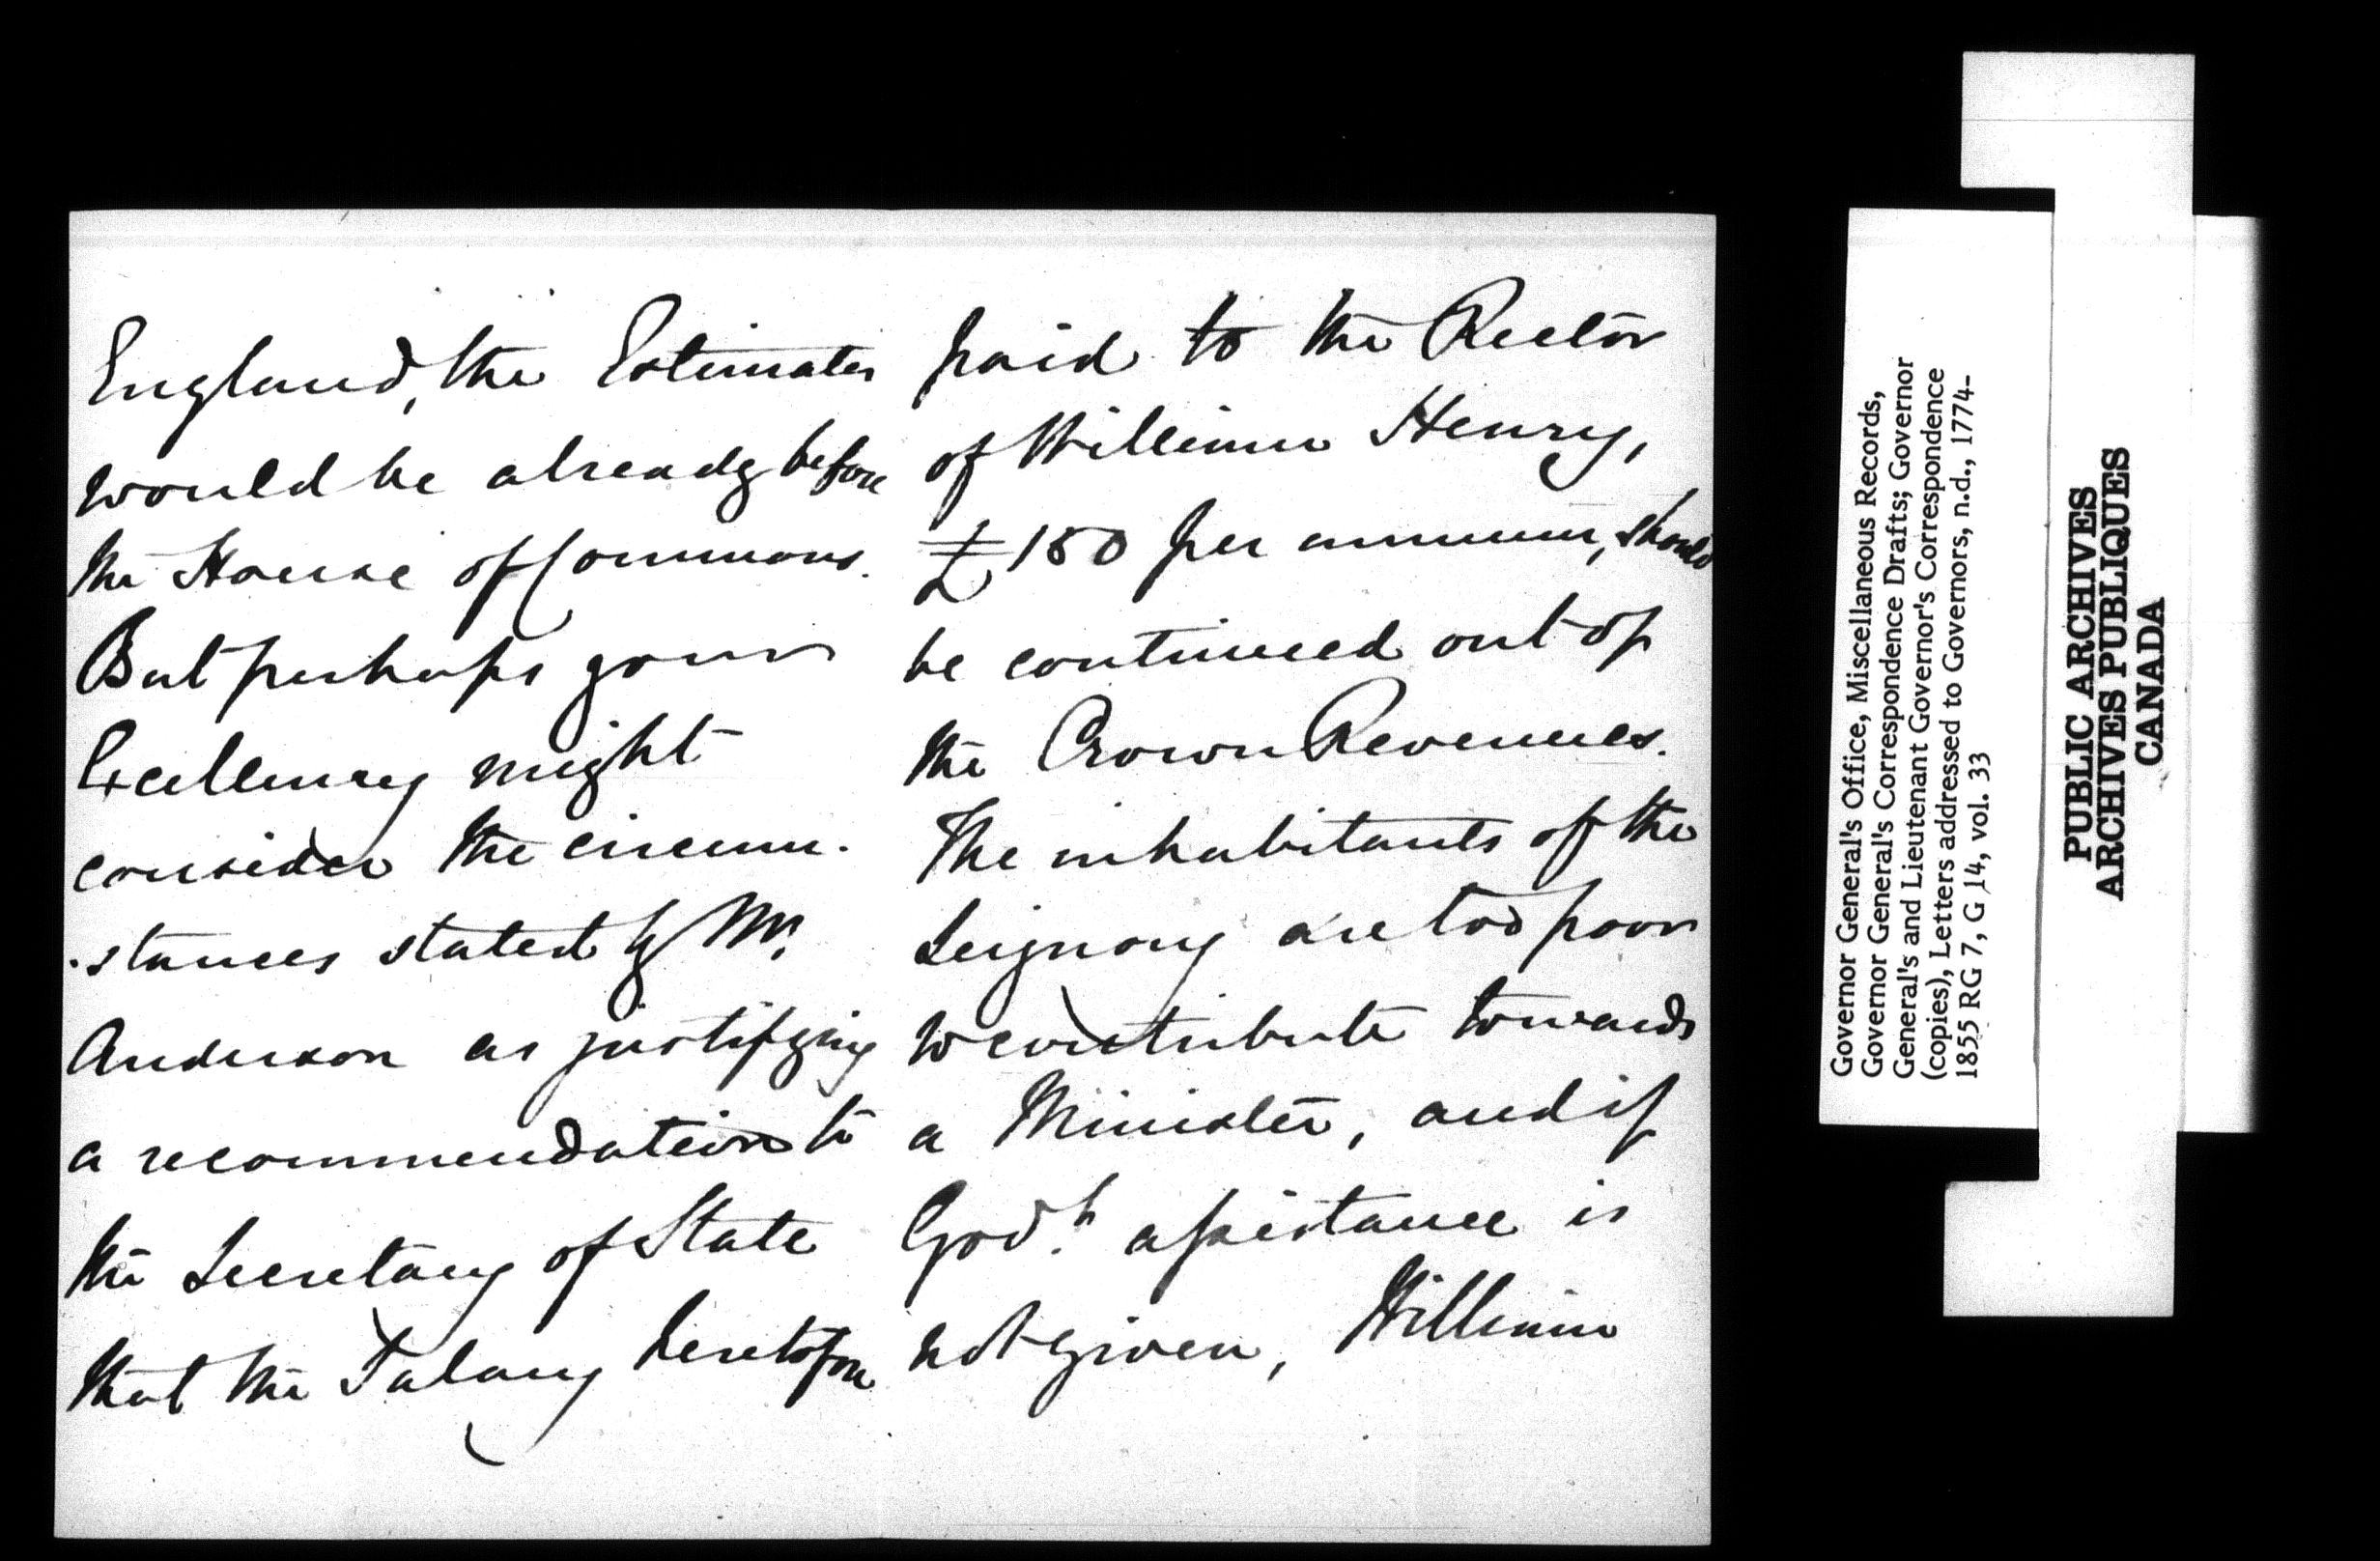 England, the Estimates
would be already before
the House of Commons.
But perhaps your
Excellency might
consider the circum-
-stances stated by Mr.
Anderson as justifying
a recommendation to
the Secretary of State
that the Salary heretofore
paid to the Rector
of William Henry,
£150 per annum, should
be continued out of
the Crown Revenues.
The inhabitants of the
Seignory are too poor
to contribute towards
a Minister, and if
Govt. assistance is
not given, William
Governor General's Office, Miscellaneous Records,
Governor General's Correspondence Drafts; Governor
General's and Lieutenant Governor's Correspondence
(copies), Letters addressed to Governors, n.d., 1774-
1855 RG 7, G 14, vol. 33
PUBLIC ARCHIVES
ARCHIVES PUBLIQUES
CANADA